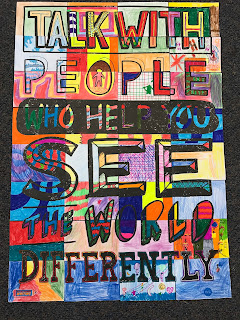 TALK WITH
PEOPLE
WHO HELP YOU
SEE
THE WORLD
DIFFERENTLY